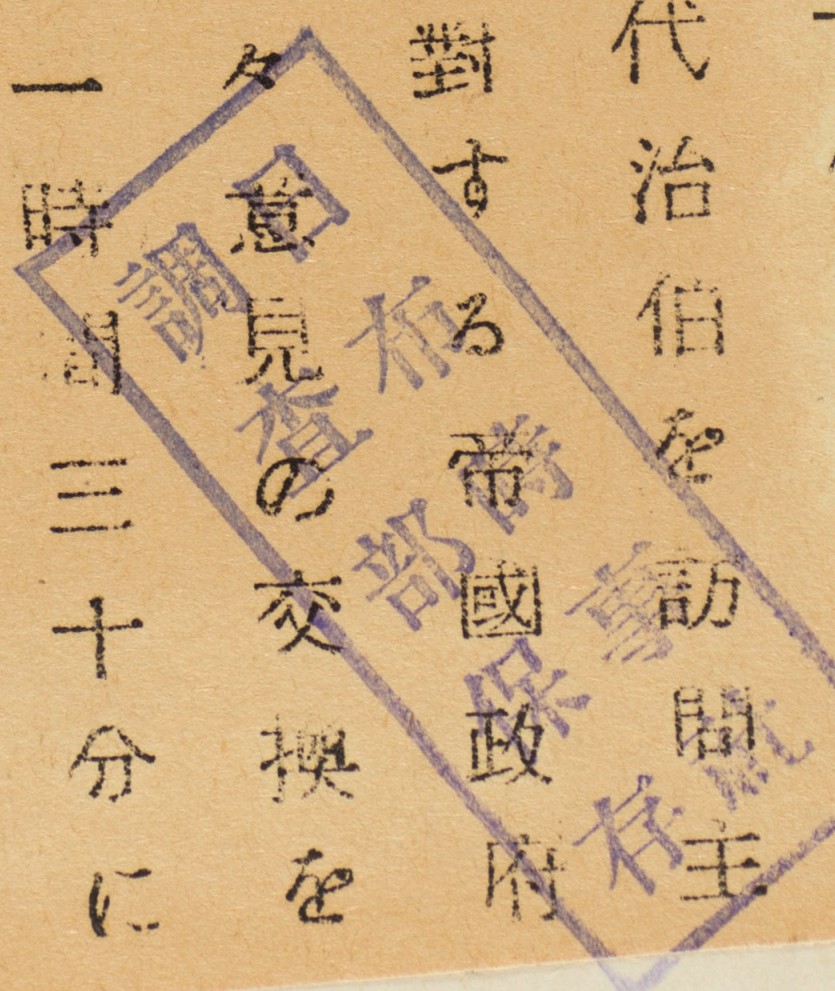 代治伯を訪問主
對する帝國政府
々意見の交換を
一時間三十分に
日布時事
調査部保存